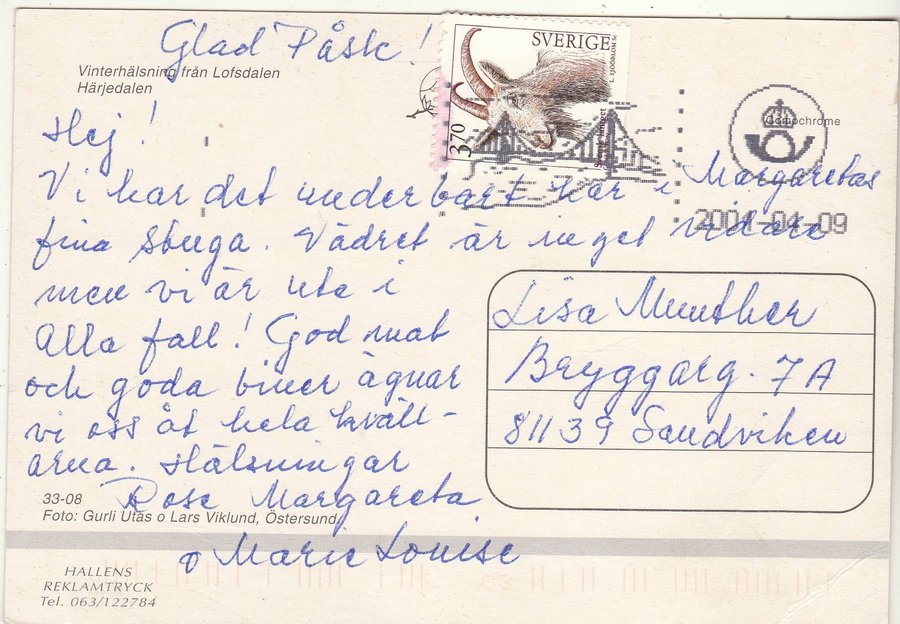 Glad Påsk!
Vinterhälsning från Lofsdalen
Härjedalen
SVERIGE
L. SJÖÖBLOM SC
3.70
Gomochrome
2001-04-09
Hej!
Vi har det underbart här i Margaretas
fina stuga. Vädret är inget vidare
men vi är ute i
alla fall! God mat
och goda viner ägnar
vi oss åt hela kväll-
arna. Hälsningar
Rose Margareta
o Marie Louise
Lisa Munther
Bryggarg. 7A
81139 Sandviken
33-08
Foto: Gurli Utas o Lars Viklund, Östersund
HALLENS
REKLAMTRYCK
Tel. 063/122784